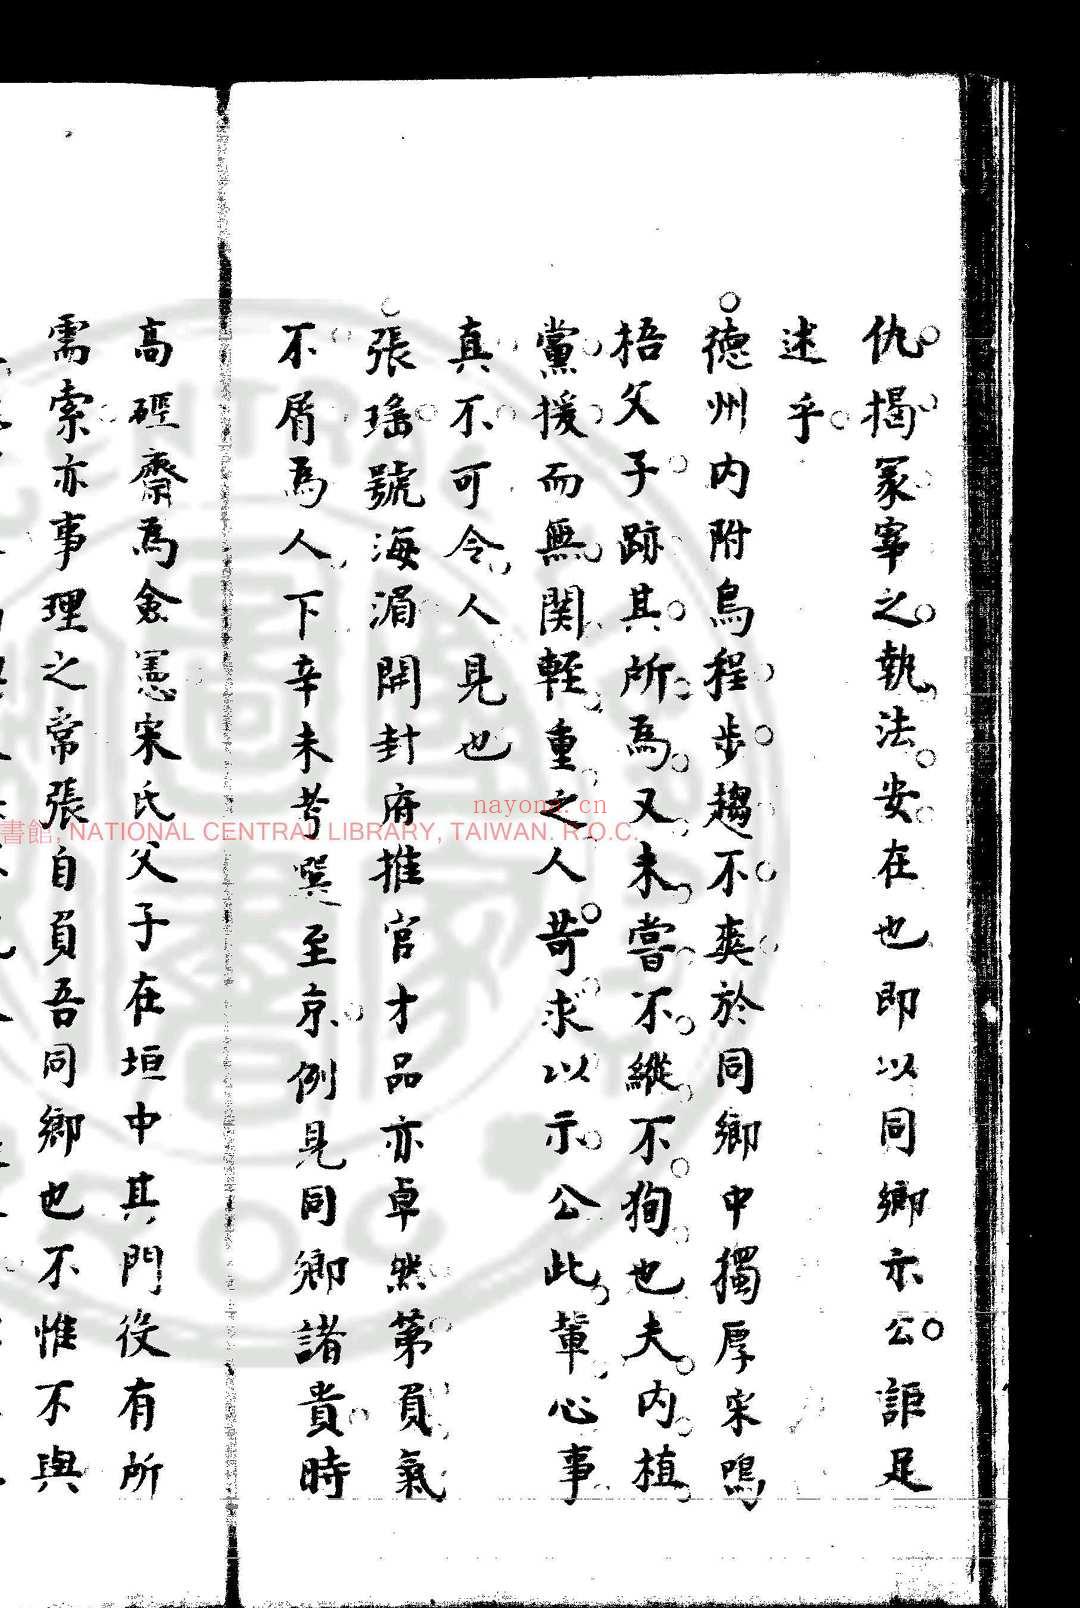 仇揭冢宰之執法安在也即以同鄉示公詎足
迷乎
德州內附烏程步趨不爽於同鄉中獨厚宋鳴
梧父子跡其所爲又未嘗不縱不狥也夫內植
黨援而無関輕重之人苛求以示公此輩心事
真不可令人見也
張瑤號海湄開封府推官才品亦卓然第負氣
不屑爲人下辛未考選至京例見同鄉諸貴時
高硜齋爲僉憲宋氏父子在垣中其門役有所
需索亦事理之常張自負吾同鄉也不惟不與
書館, NATIONAL CENTRAL LIBRARY, TAIWAN. R.O.C.
nayona.cn